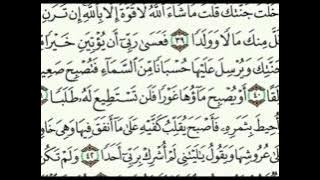 خَلْتَ جَنَّتَكَ قُلْتَ مَا شَآءَ ٱللَّهُ لَا قُوَّةَ إِلَّا بِٱللَّهِ إِن تَرَنِ
قَلَّ مِنكَ مَالًا وَوَلَدًا ٣٩ فَعَسَىٰ رَبِّىٓ أَن يُؤْتِيَنِ خَيْرًا
جَنَّتِكَ وَيُرْسِلَ عَلَيْهَا حُسْبَانًا مِّنَ ٱلسَّمَآءِ فَتُصْبِحَ صَعِيدً
قًا ٤٠ أَوْ يُصْبِحَ مَآؤُهَا غَوْرًا فَلَن تَسْتَطِيعَ لَهُۥ طَلَبًا
أُحِيطَ بِثَمَرِهِۦ فَأَصْبَحَ يُقَلِّبُ كَفَّيْهِ عَلَىٰ مَآ أَنفَقَ فِيهَا وَهِىَ خَاوِ
عَلَىٰ عُرُوشِهَا وَيَقُولُ يَٰلَيْتَنِى لَمْ أُشْرِكْ بِرَبِّىٓ أَحَدًا ٤٢ وَلَمْ تَكُن